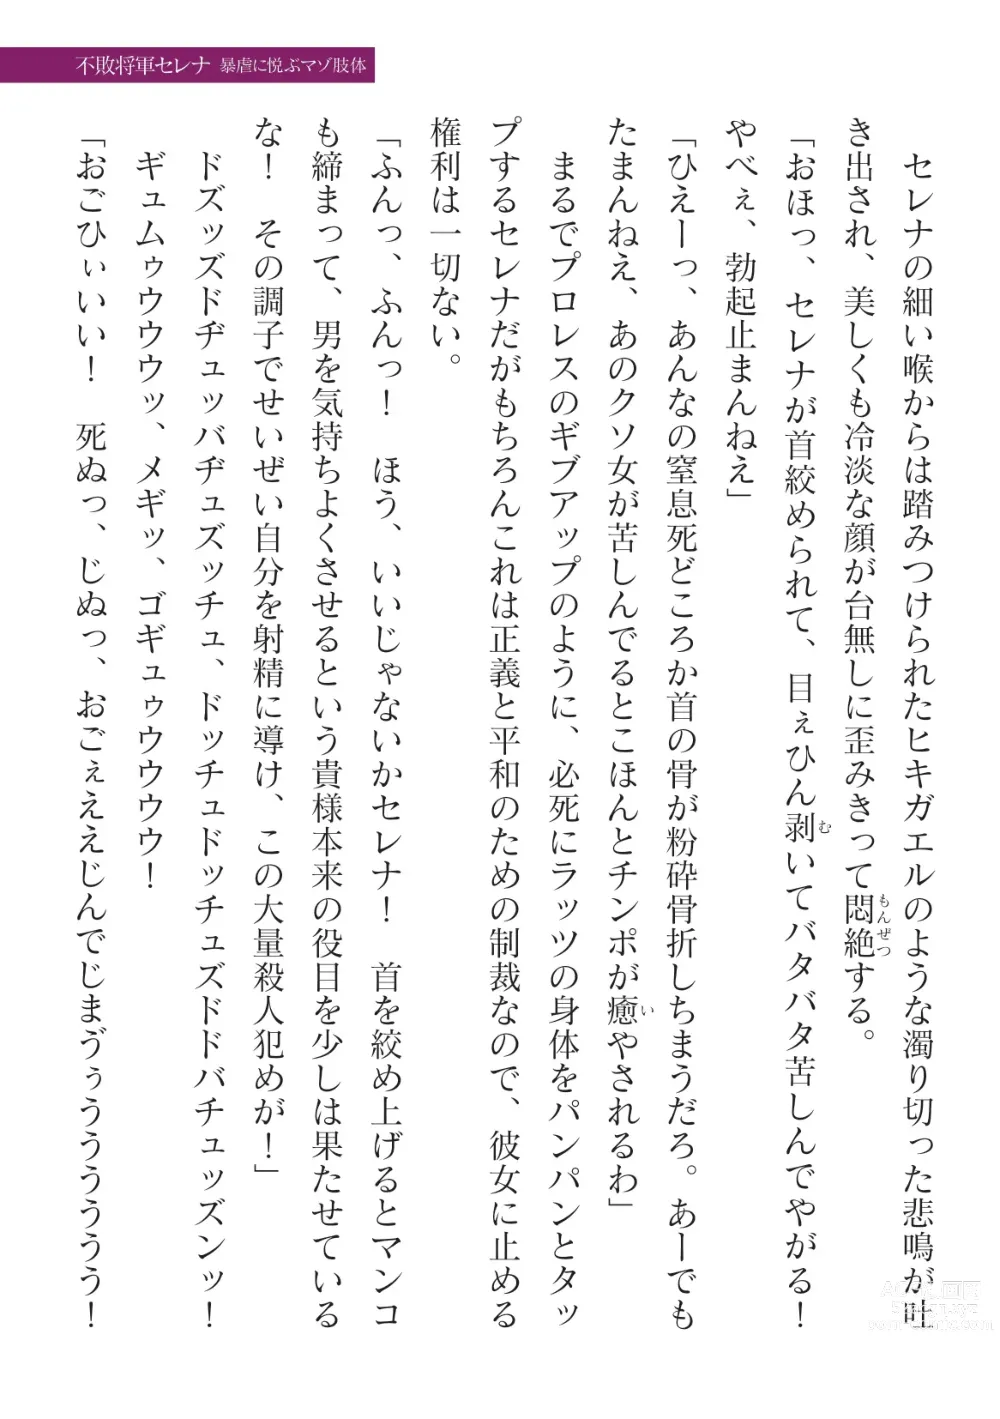 不敗将軍セレナ 暴虐に悦ぶマゾ肢体
セレナの細い喉からは踏みつけられたヒキガエルのような濁り切った悲鳴が吐
き出され、美しくも冷淡な顔が台無しに歪みきって悶絶(もんぜつ)する。
「おほっ、セレナが首絞められて、目ぇひん剥(む)いてバタバタ苦しんでやがる！
やべぇ、勃起止まんねえ」
「ひえーっ、あんなの窒息死どころか首の骨が粉砕骨折しちまうだろ。あーでも
たまんねえ、あのクソ女が苦しんでるとこほんとチンポが癒(い)やされるわ」
まるでプロレスのギブアップのように、必死にラッツの身体をパンパンとタッ
プするセレナだがもちろんこれは正義と平和のための制裁なので、彼女に止める
権利は一切ない。
「ふんっ、ふんっ！　ほう、いいじゃないかセレナ！　首を絞め上げるとマンコ
も締まって、男を気持ちよくさせるという貴様本来の役目を少しは果たせている
な！　その調子でせいぜい自分を射精に導け、この大量殺人犯めが！」
ドズッズドヂュッバヂュズッチュ、ドッチュドッチュズドドバチュッズンッ！
ギュムゥウウウッ、メギッ、ゴギュゥウウウウ！
「おごひぃいい！　死ぬっ、じぬっ、おごぇええじんでじまゔぅううううううう！